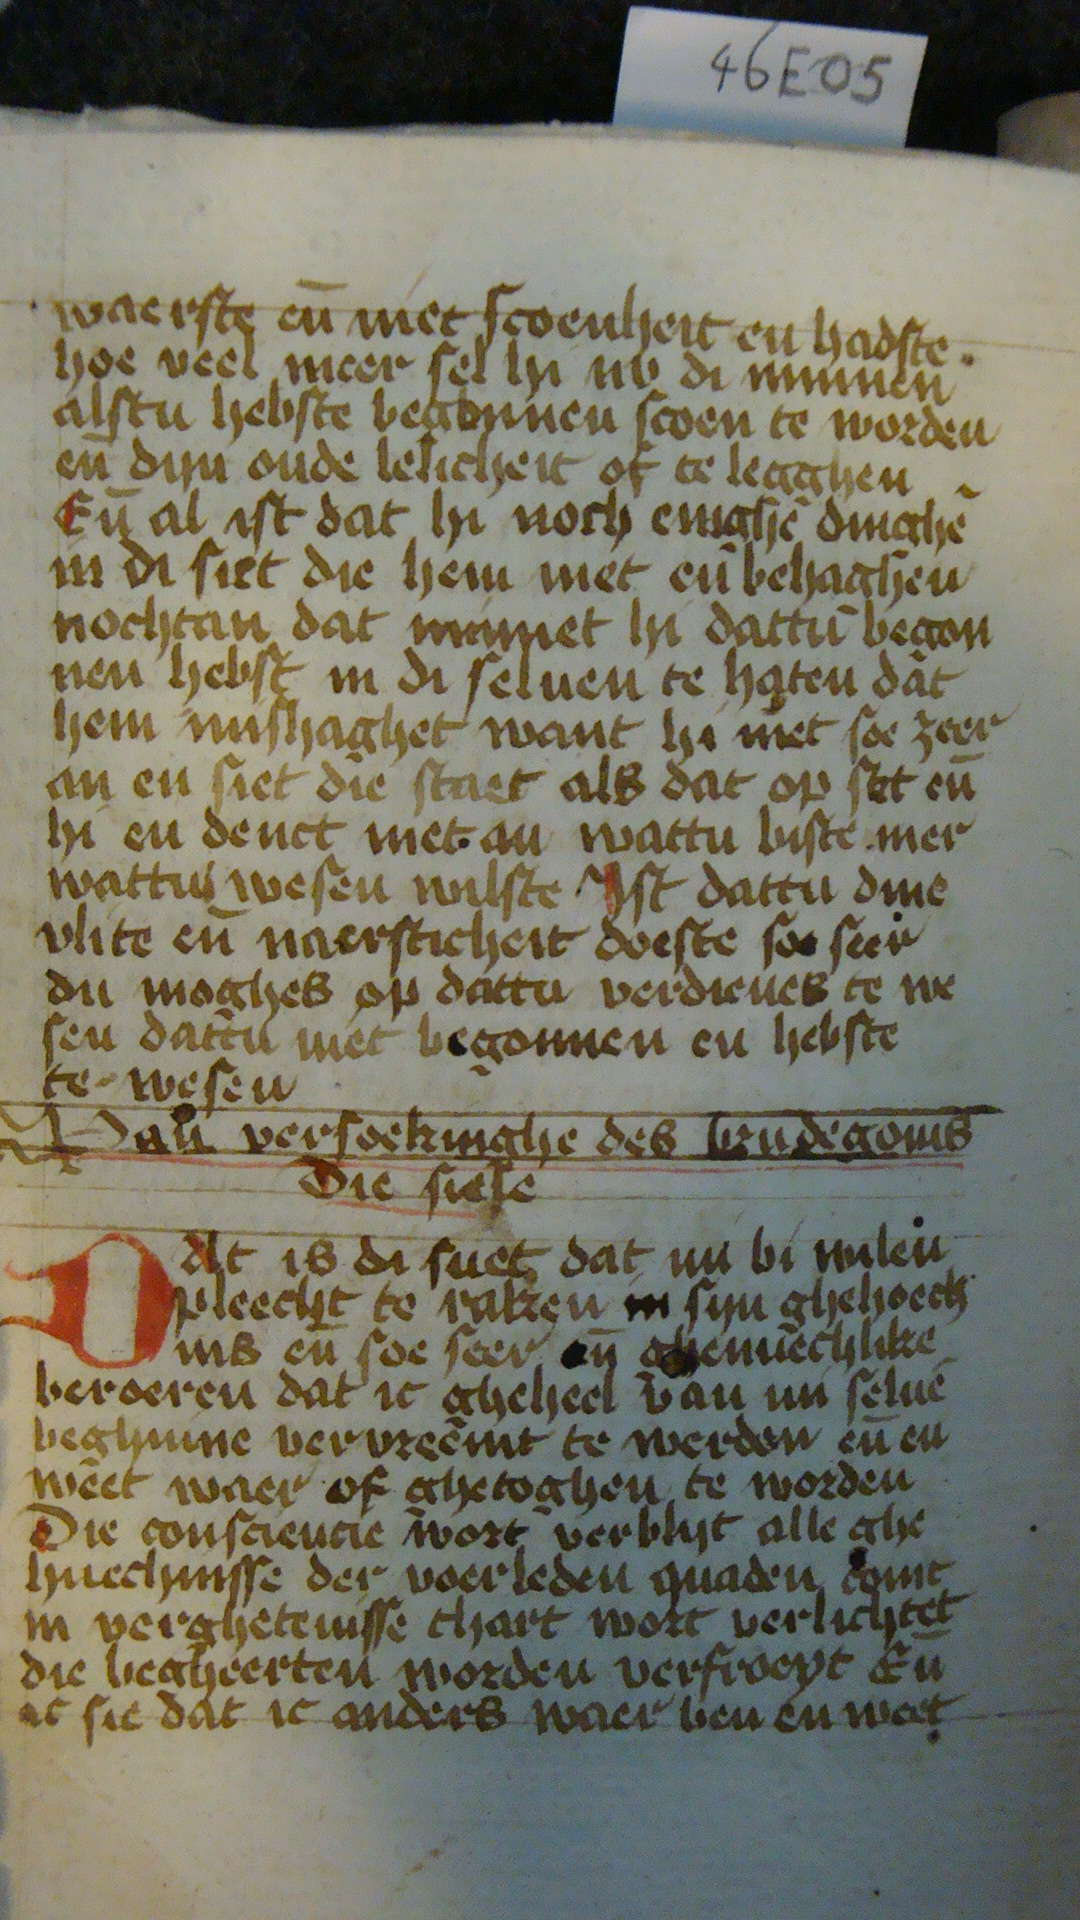 46E05
waerste en̄ niet scoenheit en hadste.
hoe veel meer sel hi nv di minnen
alstu hebste begonnen scoen te worden
en̄ dijn oude lelicheit of te legghen
En̄ al ist dat hi noch enighē dinghē
in di siet die hem niet en̄ behaghen
nochtan dat minnet hi dattū began
nen hebst in di seluen te haten dat
hem mishaghet want hi niet soe zeer
an en siet die staet als dat op set en̄
hi en denct niet an wattu biste mer
wattu wesen wilste Ist dattu dine
vlite en̄ naersticheit doeste soe seer
du moghes op dattu verdienes te we
sen dattu niet begonnen en hebste
te wesen
Van versoekinghe des brudegoms
Die siele
Dat is di suet dat mi bi wilen
pleecht te raken in sijn ghehoech
nis en̄ soe seer en̄ ghenuechlike
beroeren dat ic gheheel van mi seluē
beghinne vervreemt te werden en̄ en
weet waer of ghetoghen te worden
Die consciencie wort verblijt alle ghe
huechnisse der voerleden quaden comt
in verghetenisse thart wort verlichtet
die begheerten worden verfroeyt En̄
ic sie dat ic anders waer ben en weet